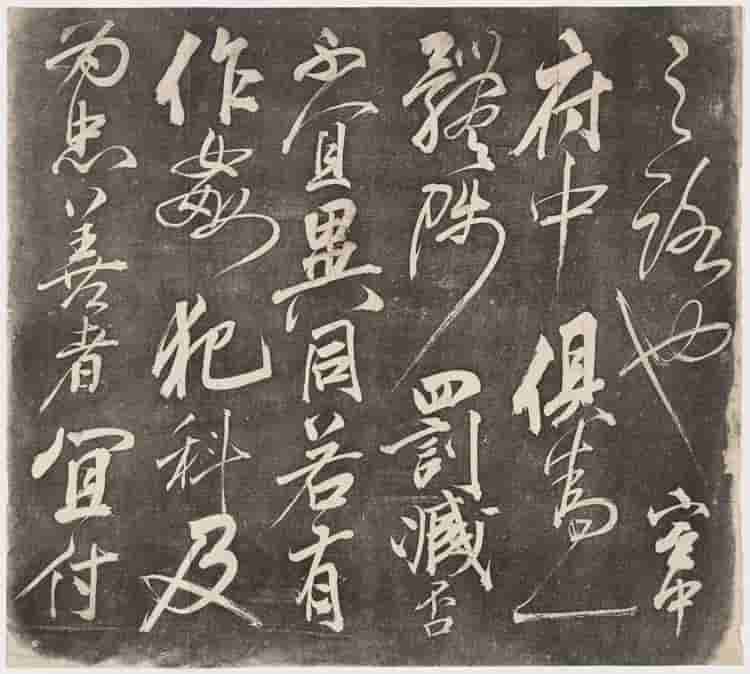 之諮也宮中
府中俱為一
體陟罰臧否
不宜異同若有
作姦犯科及
為忠善者宜付